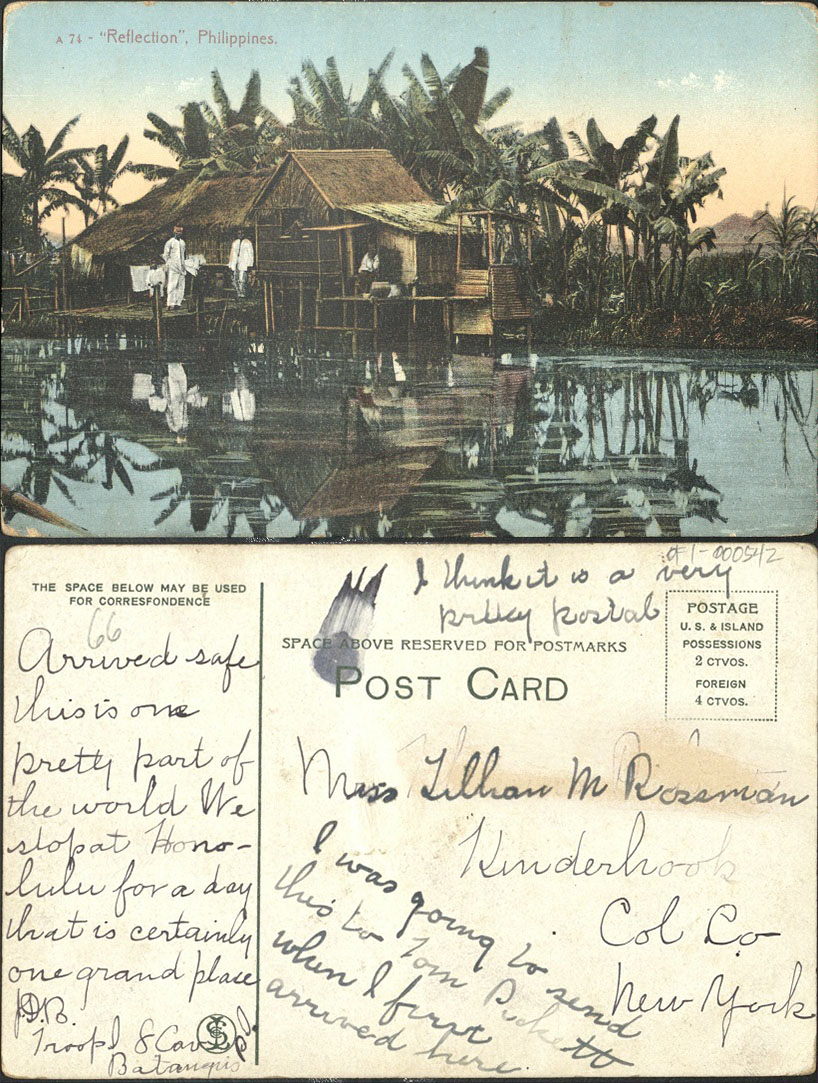 A 74 - "Reflection", Philippines.
OF1-000542
I think it is a very
pretty postal
THE SPACE BELOW MAY BE USED
FOR CORRESFONDENCE
66
SPACE ABOVE RESERVED FOR POSTMARKS
POST CARD
POSTAGE
U. S. & ISLAND
POSSESSIONS
2 CTVOS.
FOREIGN
4 CTVOS.
Arrived safe
this is one
pretty part of
the world We
stop at Hono-
lulu for a day
that is certainly
one grand place
P.B.
Troop I 8 Cav
Batangus
P.I.
Miss Lillian M Rossman
Kinderhook
Col Co
New York
I was going to send
this to Tom Pickett
when I first
arrived here.